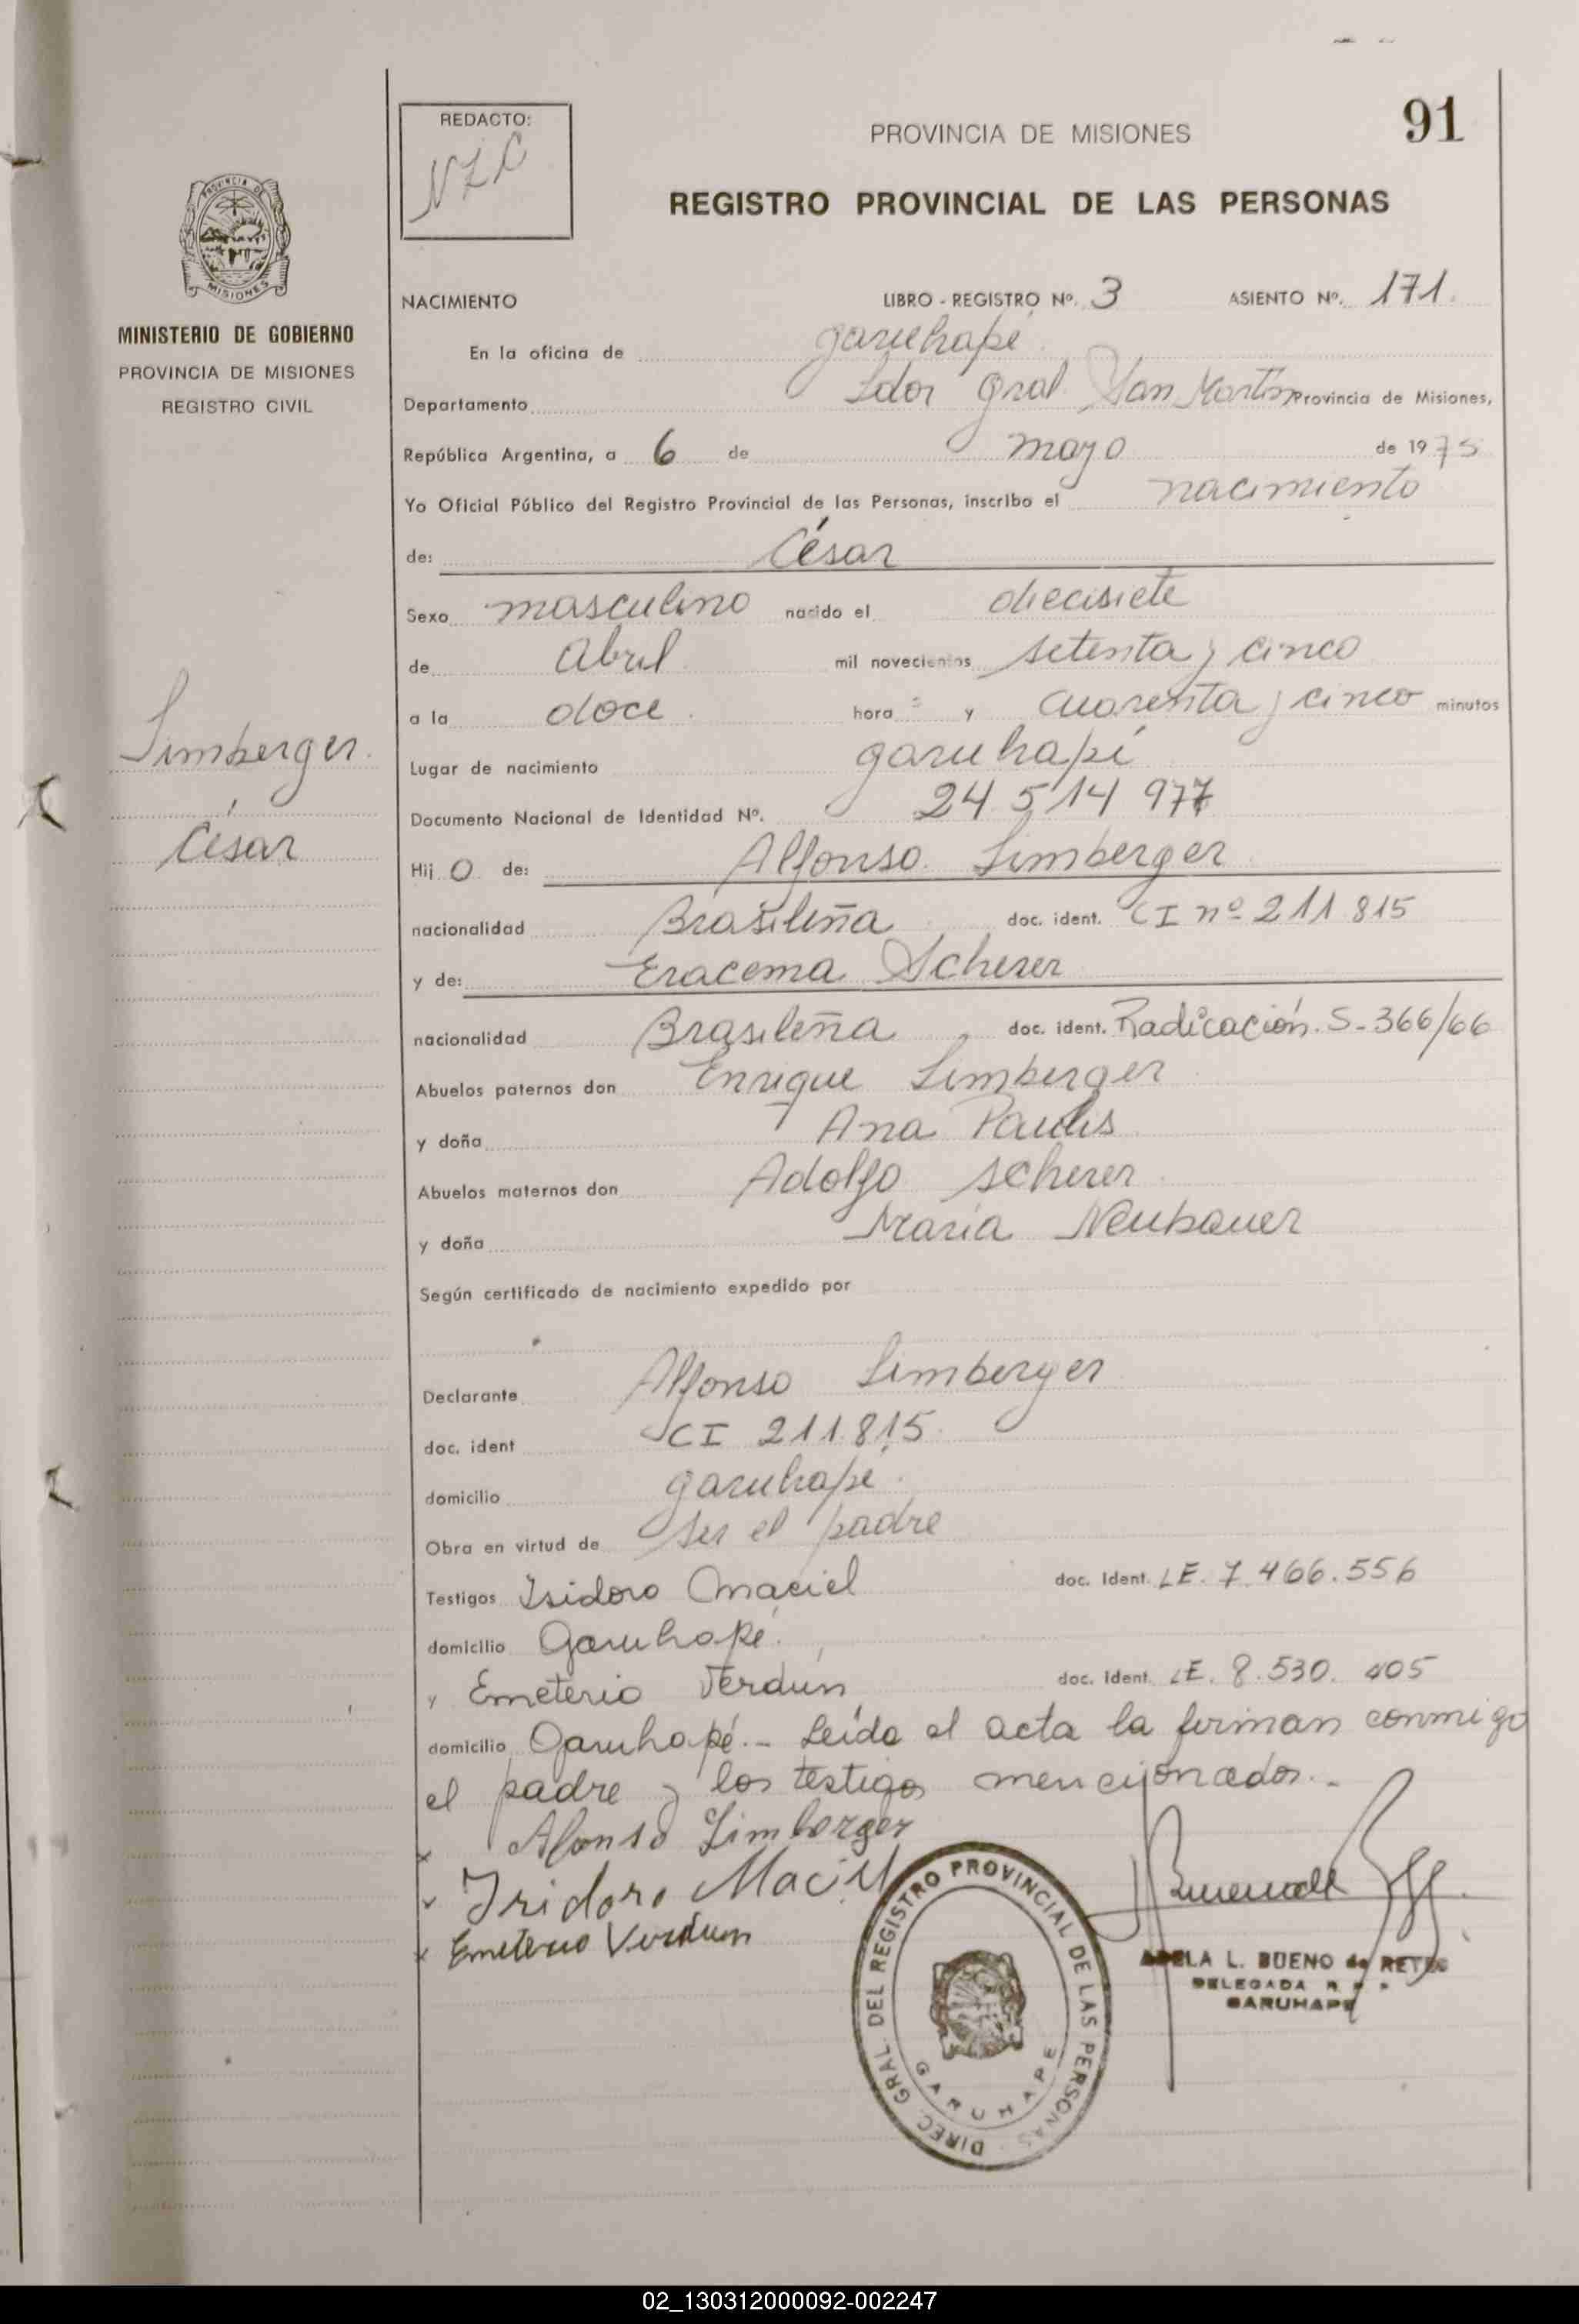 REDACTO:
NZC
PROVINCIA DE MISIONES
91
REGISTRO PROVINCIAL DE LAS PERSONAS
PROVINCIA DE
MISIONES
MINISTERIO DE GOBIERNO
PROVINCIA DE MISIONES
REGISTRO CIVIL
NACIMIENTO LIBRO - REGISTRO Nº. 3 ASIENTO Nº. 171.
En la oficina de Garuhapé.
Departamento Ldor Gral. San Martín Provincia de Misiones,
República Argentina, a 6 de mayo de 1975
Yo Oficial Público del Registro Provincial de las Personas, inscribo el nacimiento
de: César
Sexo masculino nacido el diecisiete
de abril mil novecientos setenta y cinco
a la doce hora s y cuarenta y cinco minutos
Limberger.
César
Lugar de nacimiento Garuhapé
Documento Nacional de Identidad Nº. 24.514.977
Hij o de: Alfonso Limberger
nacionalidad Brasileña doc. ident. CI nº 211.815
y de: Eracema Scherer
nacionalidad Brasileña doc. ident. Radicación. S-366/66
Abuelos paternos don Enrique Limberger
y doña Ana Paulis
Abuelos maternos don Adolfo Scherer
y doña María Neubauer
Según certificado de nacimiento expedido por
Declarante Alfonso Limberger
doc. ident CI 211.815.
domicilio Garuhapé.
Obra en virtud de ser el padre
Testigos Isidoro Maciel doc. Ident. LE. 7.466.556
domicilio Garuhapé.
y Emeterio Verdún doc. Ident. LE. 8.530.405
domicilio Garuhapé.- Leída el acta la firman conmigo
el padre y los testigos mencionados.-
x Alfonso Limberger
x Isidoro Maciel
x Emeterio Verdun
DIREC. GRAL. DEL REGISTRO PROVINCIAL DE LAS PERSONAS
GARUHAPE
ADELA L. BUENO de REYES
DELEGADA R P P
GARUHAPE
02_130312000092-002247